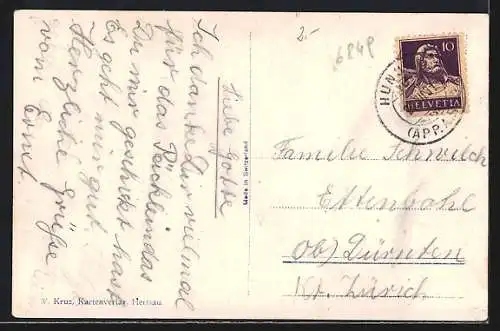 Liebe Gotte
Ich danke Dir vielmal
für das Päcklein das
Du mir geschickt hast
Es geht mir gut
Herzliche Grüße
vom Ernst.
W. Kruz, Kartenverlag, Herisau.
Made in Switzerland
2.-
6849
10
HELVETIA
HUN
(APP.)
Familie Schwilch
Ettenbohl
ob/ Dürnten
Kt. Zürich